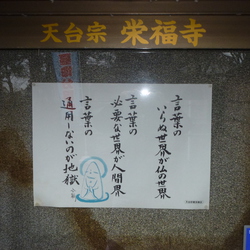 天台宗 栄福寺
言葉の
いらぬ世界が仏の世界
言葉の
必要な世界が人間界
言葉の
通用しないのが地獄